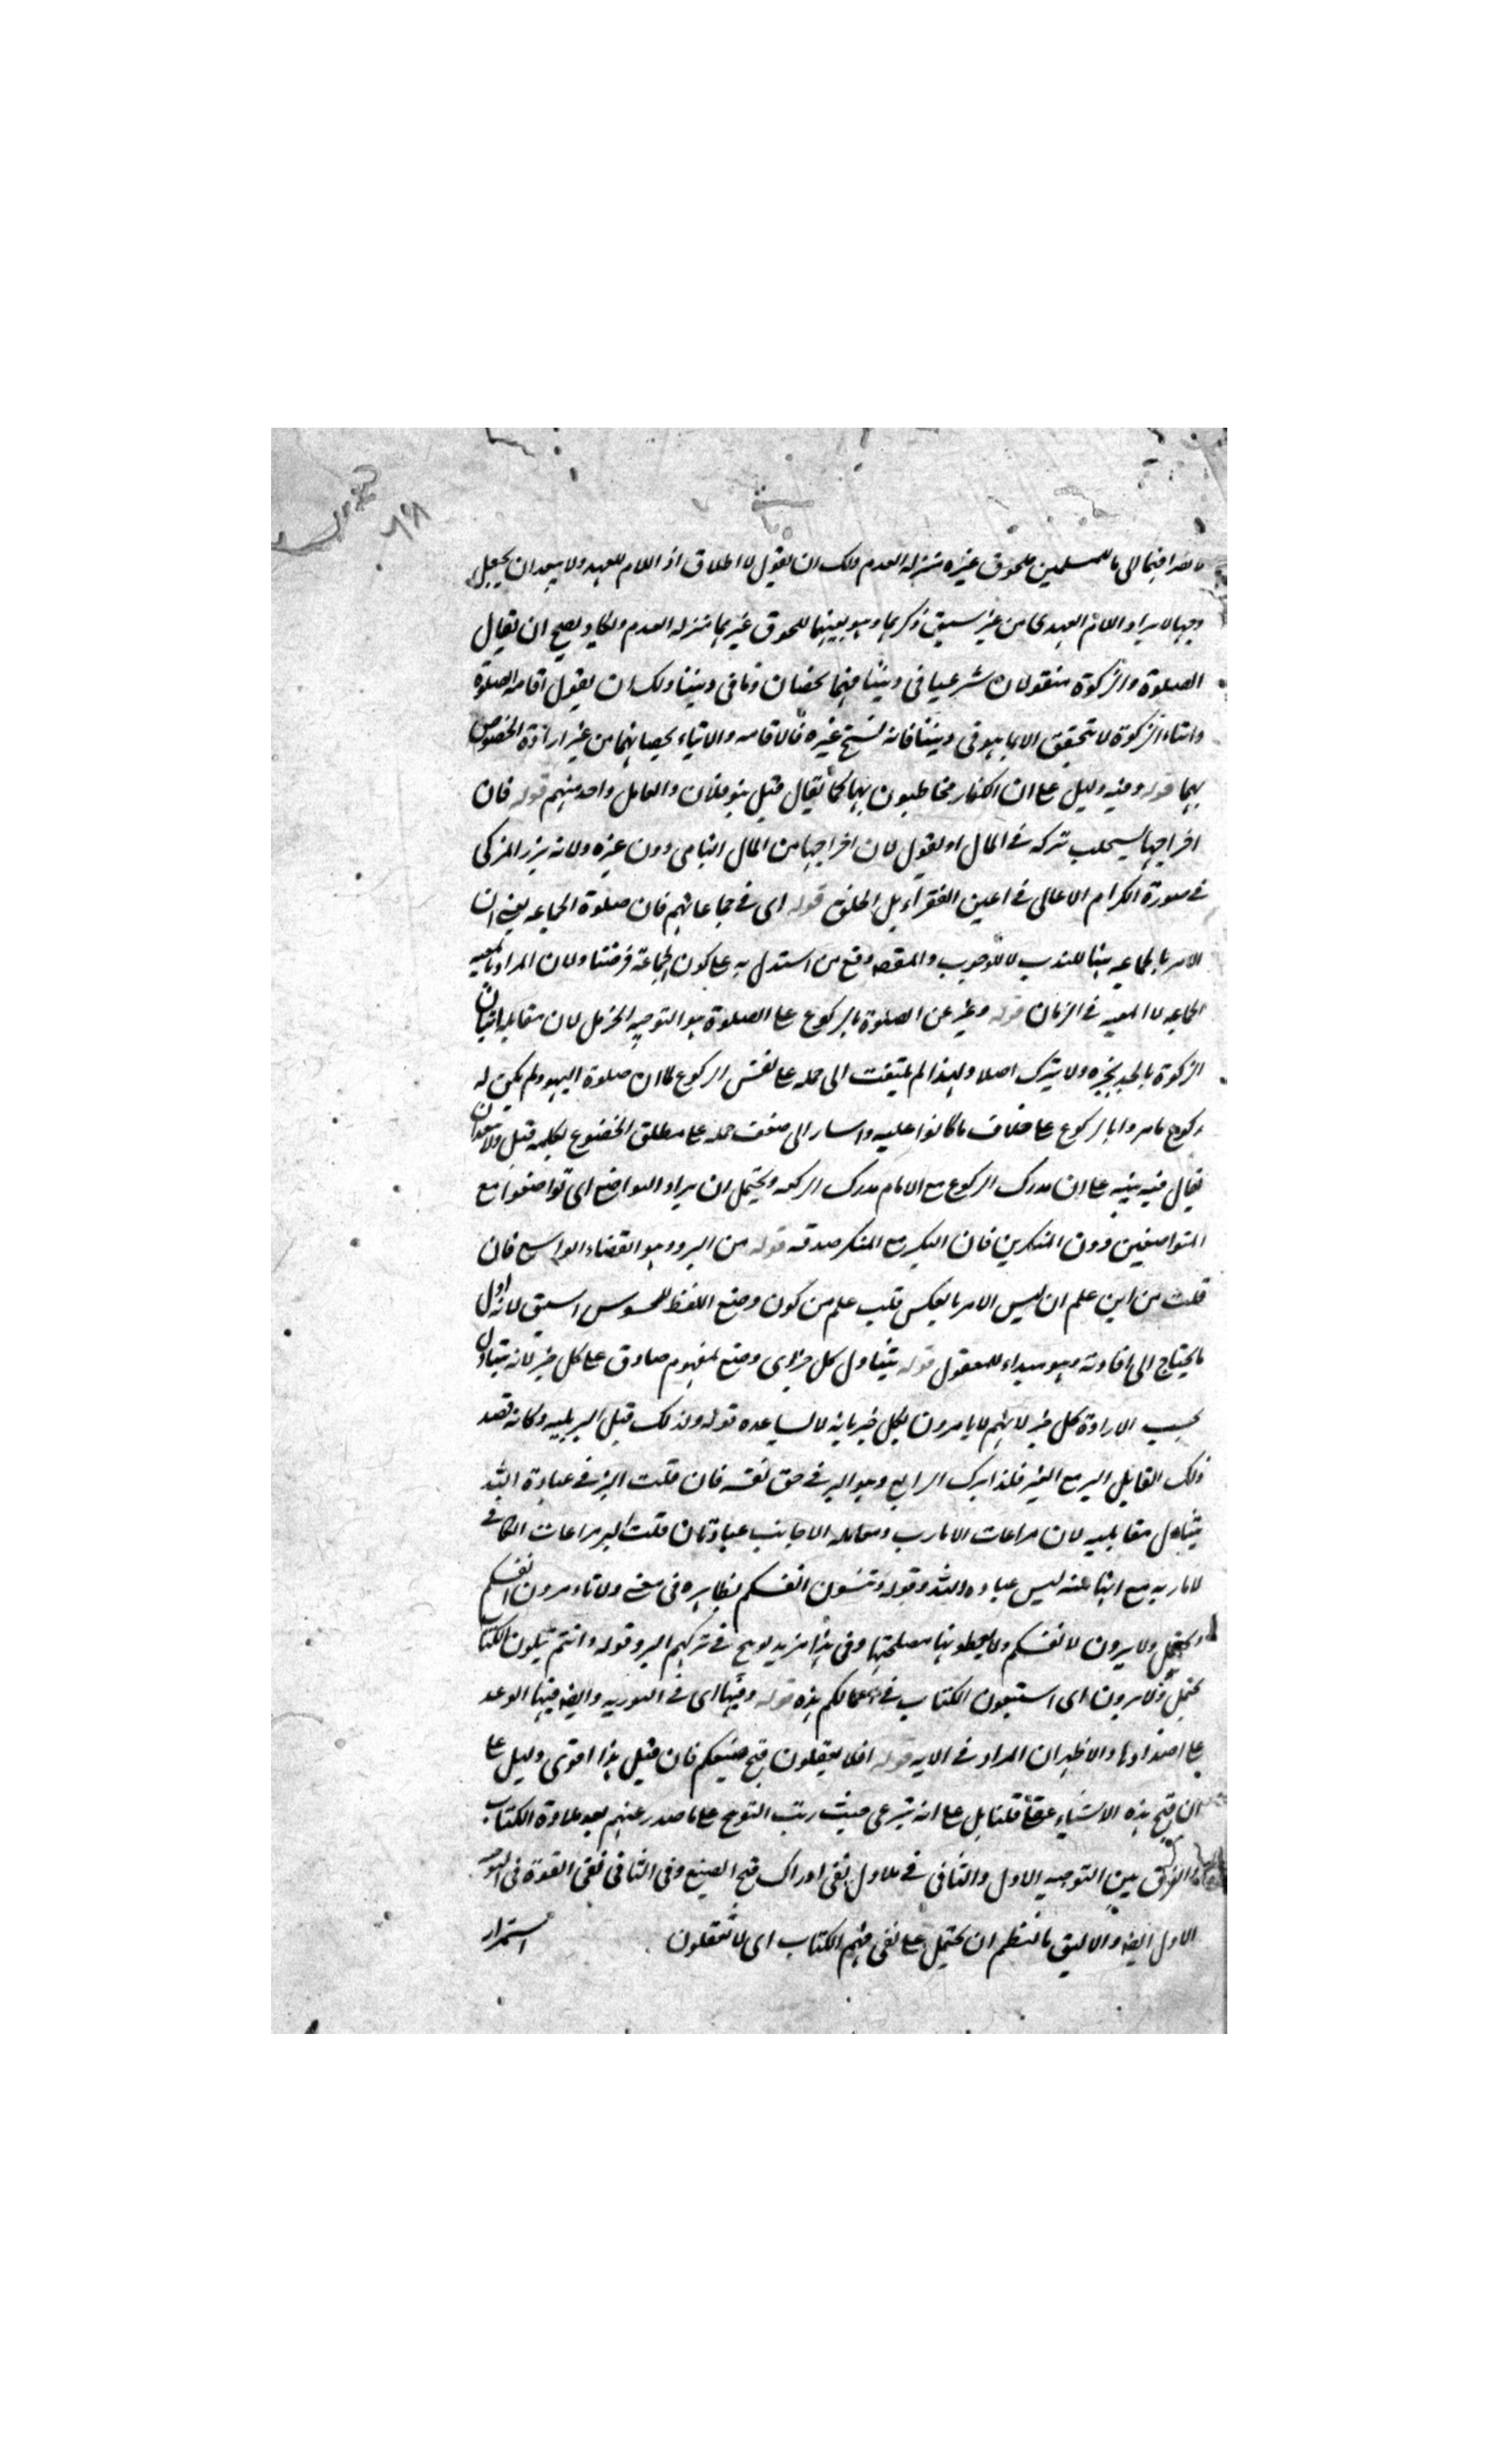 بالضرافيما الى ما للمسلمين ملحوق غيره منزلة العدم ولك ان يقول لا اطلاق اذ اللام للعهد ولا يبعد ان يجعل
وجها لايراد اللام العهدى من غير سبق ذكرهما وهو بعينهما للحوق غيرهما منزلة العدم ولا يصح ان يقال
الصلوة والزكوة منقولان شرعيا فى ديننا فهما يخصان وما فى ديننا ولك ان يقول اقامة الصلوة
وايتاء الزكوة لا يتحقق الا بما هو فى ديننا فانه نسخ غيره فالاقامة والايتاء يخصانهما من غير ارادة الخصوص
بهما قوله وفيه دليل على ان الكفار مخاطبون بها كما يقال قتل بنو فلان والعامل واحد منهم قوله فان
اخراجها يستجلب بركة فى المال او يقول لان اخراجها من المال النامى دون غيره ولانه يزيد المزكى
فى صورة الكرام الاعالى فى اعين الفقراء بل الخلق قوله اى فى جماعاتهم فان صلوة الجماعه يعنى ان
الامر بالجماعه هنا للندب لا للوجوب والمقصود منع من استدل به على كون الجماعة فرضنا ولان المراد بالمعيه
الجماعه لا المعيه فى الزمان قوله وعبر عن الصلوة بالركوع على الصلوة هو التوجيه الجزل لان مقابلة ايتان
الزكوة بالجد بخبره ولا يترك اصلا ولهذا لم يلتفت الى حمله على نفس الركوع لما ان صلوة اليهود لم يكن له
ركوع فامروا بالركوع على خلاف ما كانوا عليه واشار الى ضعف حمله على مطلق الخضوع بكلمه قيل ولا يبعد ان
يقال فيه تنبيه على ان مدرك الركوع مع الامام مدرك الركعه ويحتمل ان يراد التواضع اى تواضعوا مع
المتواضعين دون المتكبرين فان التكبر مع المتكبر صدقة قوله من البر وهو الفضاء الواسع فان
قلت من اين علم ان ليس الامر بالعكس قلت علم من كون وضع اللفظ للمحسوس اسبق لانه اول
ما يحتاج الى افادته وهو مبداء للمعقول قوله يتناول كل خير اى وضع لمفهوم صادق على كل خير لانه يتناول
بحسب الارادة كل خير لانهم لا يامرون بكل خير فانه لا يساعده قوله ولذلك قيل البر ثلثه وكانه قصد
ذلك القايل البر مع الغير فلذا ترك الرابع وهو البر فى حق نفسه فان قلت البر فى عبادة الله
يتناول مقابليه لان مراعات الاقارب ومعامله الاجانب عبادتان قلت البر مراعات الكافى
لاقاربه مع ليس عباده الله وقوله وتنسون انفسكم بظاهره فى معنى ولا تاءمرون انفسكم
ويحتمل ولا يبرون لانفسكم ولا يحفظونها مصلحتها وفى هذا مزيد توبيخ فى تركهم البر وقوله وانتم تتلون الكتاب
يحتمل ولامرون اى استتبعون الكتاب فى اعمالكم هذه قوله وفيها اى فى التوريه وايضا فيها الوعد
على اضدادها والاظهر ان المراد فى الايه قوله افلا يعقلون قبح صنيعكم فان قيل هذا اقوى دليل على
ان قبح هذه الاشياء عقلا قلنا بل على انه شرعى حيث رتب التوبيخ على ما صدر عنهم بعد تلاوة الكتاب
والفرق بين التوجيه الاول والثانى فى الاول نفى ادراك قبح الصنيع وفى الثانى نفى القوة فى
الاول ايضا والاليق بالنظم ان يحتمل على نفى فهم الكتاب اى لا تعقلون
استمرار